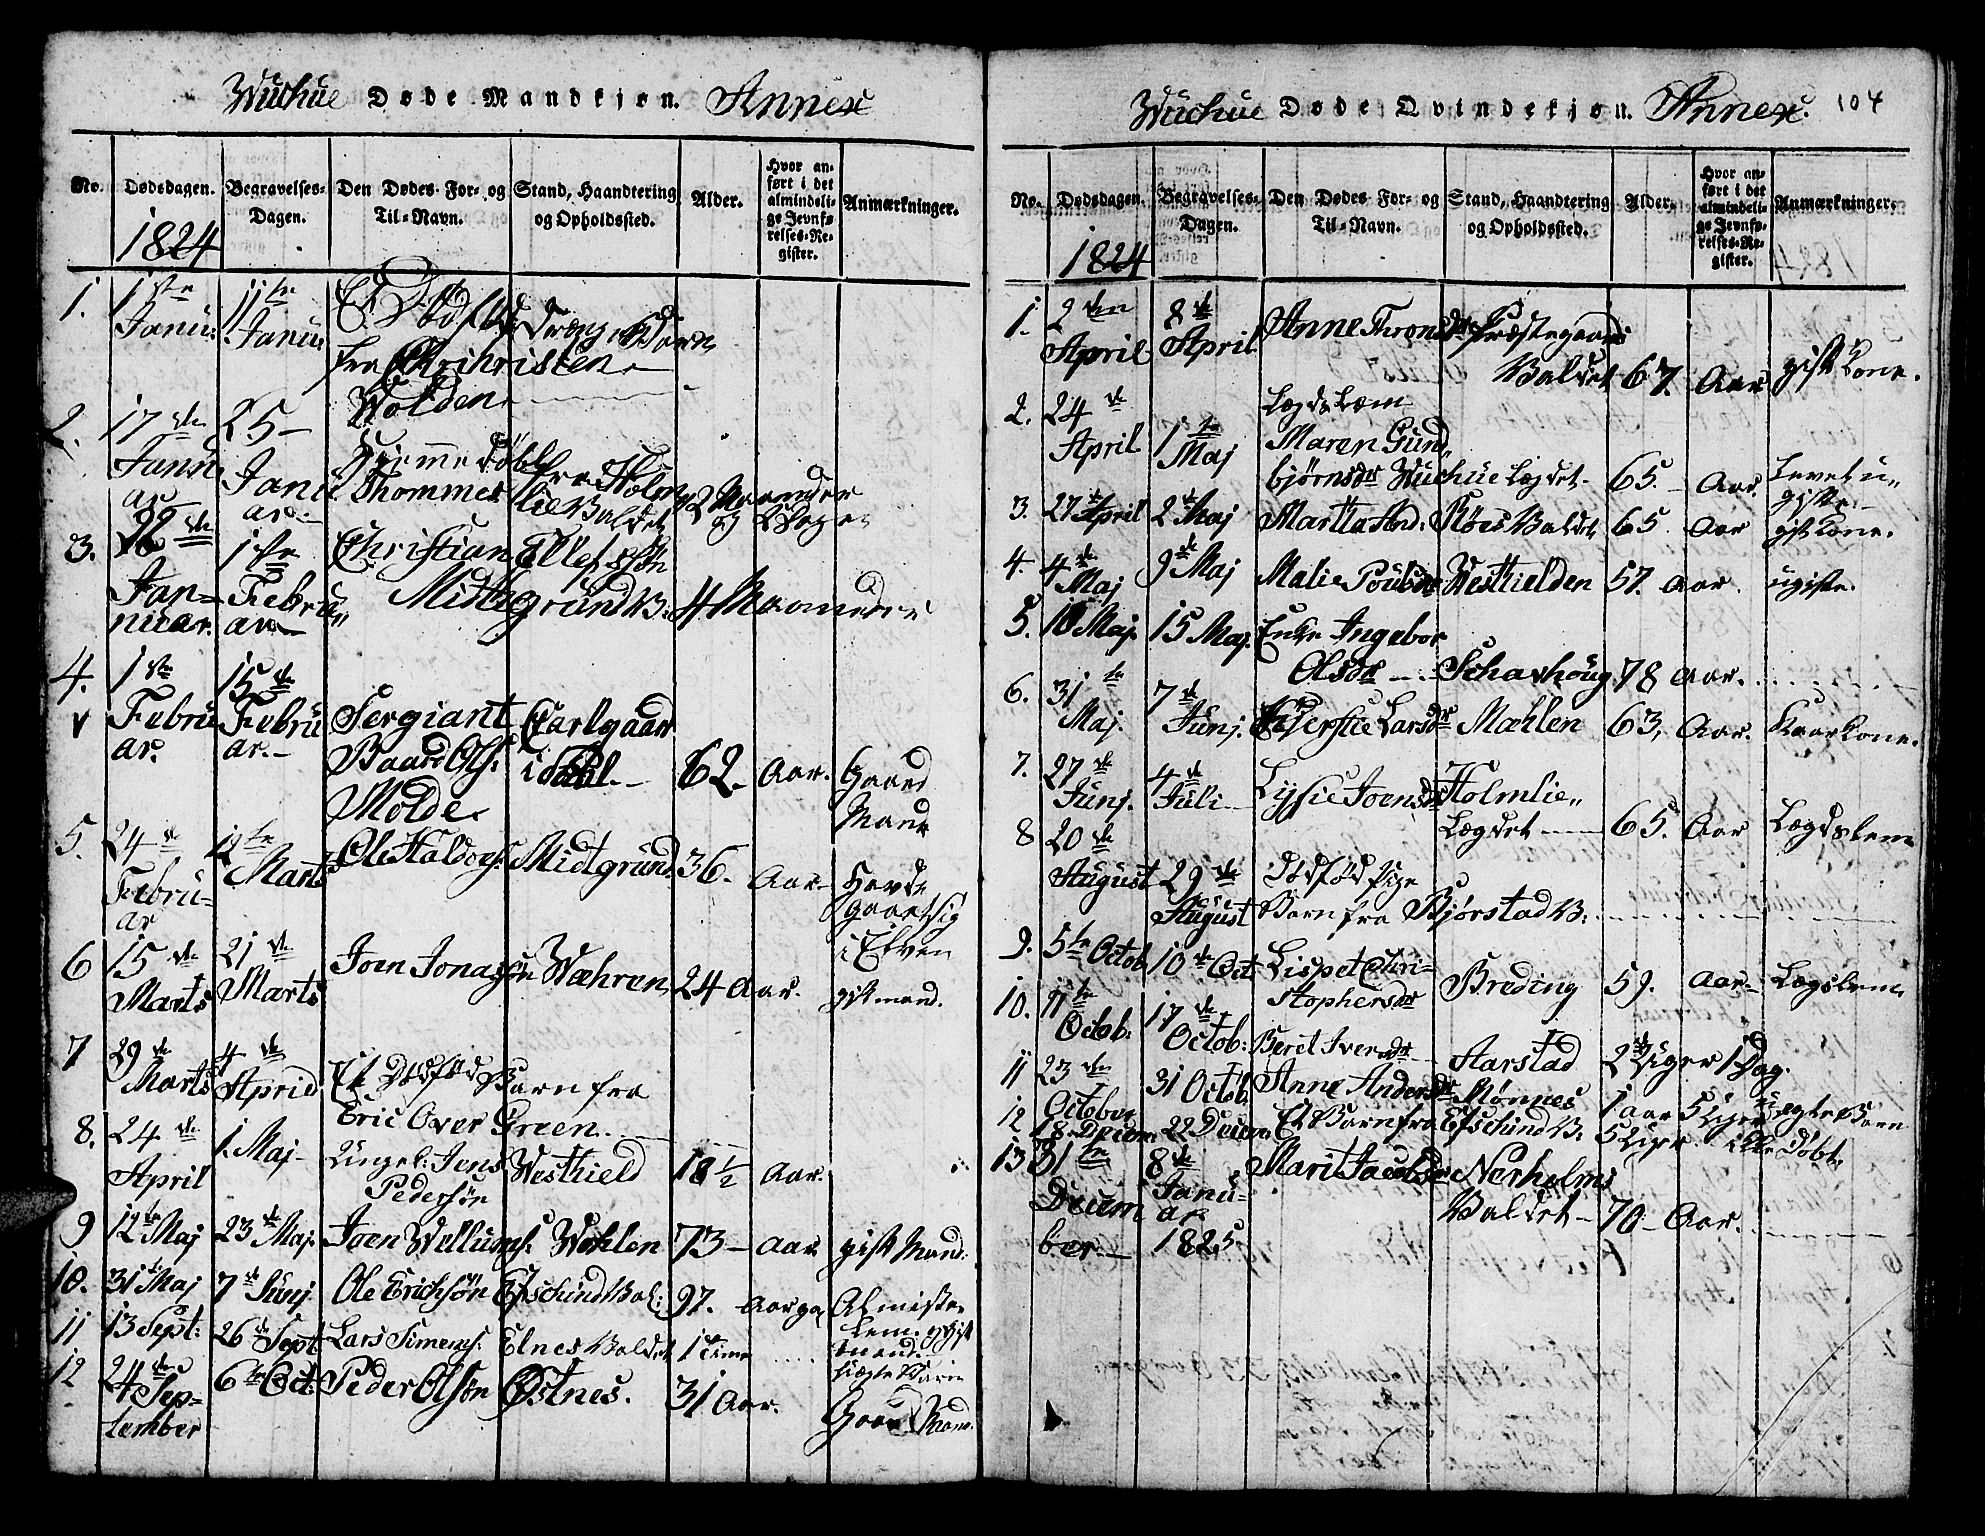 Wuchue Døde Mandkjøn. Annex
No.
Dødsdagen.
Begravelses-Dagen.
Den Dødes For- og Til-Navn.
Stand, Haandtering og Opholdssted.
Alder.
Hvor anført i det almindelige Jevnførelses-Register.
Anmærkninger.
1824
1. 1ste Janu: 11te Janu: Et Dødfød Drænge Barn
fra Christen
Wolden
2. 17de Januar 25 Januar Hjemmedøbt
Thommes fra Holmlie Valdet 12 Maaneder og Dage
3. 22de Januar. 1ste Februar Christian Ellefssøn
Midtgrund V: 4. Maaneder
4. 1ste Februar. 15de Februar. Sergiant
Baard Ols:
Molde Carlgaar
i Dahl 62. Aar. Gaard
Mand
5. 24de Februar 19te Marts Ole Haldors: Midtgrund 36. Aar
Havde
i Elven
6 15de Marts 21de Marts Joen Jonassøn Wæhren 24 Aar. gift mand.
7 29de Marts 4de April Et Dødfød Barn fra
Eric Over Green
8. 24de April 1. Maj Ungel: Jens
Pedersøn Westhield 18½ Aar.
9 12te Maj 23de Maj. Joen Wellums: Wohlen 73 Aar gift Mand.
10. 31te Maj 7de Junj. Ole Erichsøn Efschind Val: 97. Aar
Lem. og gift
mand.
11 13 Sept: 26de Sept Lars Simens: Elnes Valdet 1 Time
12 24de September 6te Oct: Peder Olsøn Østnes. 31 Aar. Gaard Mand.
Wuchue Døde Qvindekjøn. Annex. 104
No.
Dødsdagen.
Begravelses-Dagen.
Den Dødes For- og Til-Navn.
Stand, Haandtering og Opholdssted.
Alder.
Hvor anført i det almindelige Jevnførelses-Register.
Anmærkninger.
1824
1. 2den April 8de April Anne Thronsdr Præstegaards
Valdet 67. Aar gift Kone.
2. 24de April 1te Maj Lægdslem
Maren Gund
bjørnsdr Wuchue Lægdet 65. Aar. Levet u
gifte.
3. 27de April 2de Maj Martta And: Røes Valdet 65 Aar gift Kone.
4. 4de Maj 9de Maj Malie Poulsdr Westhielden 57. Aar. ugifte.
5. 10 Maj. 15 Maj. Enke Ingebor
Olsdr Scharhoug 78 Aar.
6. 31te Maj. 7de Junj. Kjerstie Larsdr Mæhlen 63. Aar. Kaarkone.
7. 27de Junj. 4de Juli Lissie Joensdr Holmlie
Lægdet 65. Aar Lægdslem
8 20de August 29de August Dødfød Pige
Barn fra Bjørstad V:
9. 5te Octob 10de Oct Lispet Chri-
stophersdr Breding 59. Aar Lægslem
10. 11te Octob: 17de Octob: Beret Iversdr Starstad 2 Uger 1 Dag.
11 23de October 31 Octob. Anne Andersdr Mønnes 1 aar 5 Uger uægte Barn
12 18. Decem 22 Decem Et Barn fra Efschind V: 5 Uger ikke døbt
13 31te December 8de Januar 1825. Marit Jacobsdr Nerholms
Valdet 70 Aar.